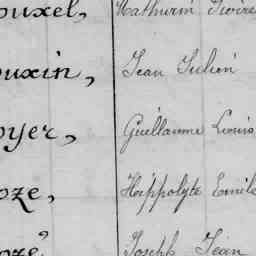 ouxel, Mathurin Pierre
ouxin, Jean Julien
oyer, Guillaume Louis
oze, Hippolyte Emile
ozé, Joseph Jean